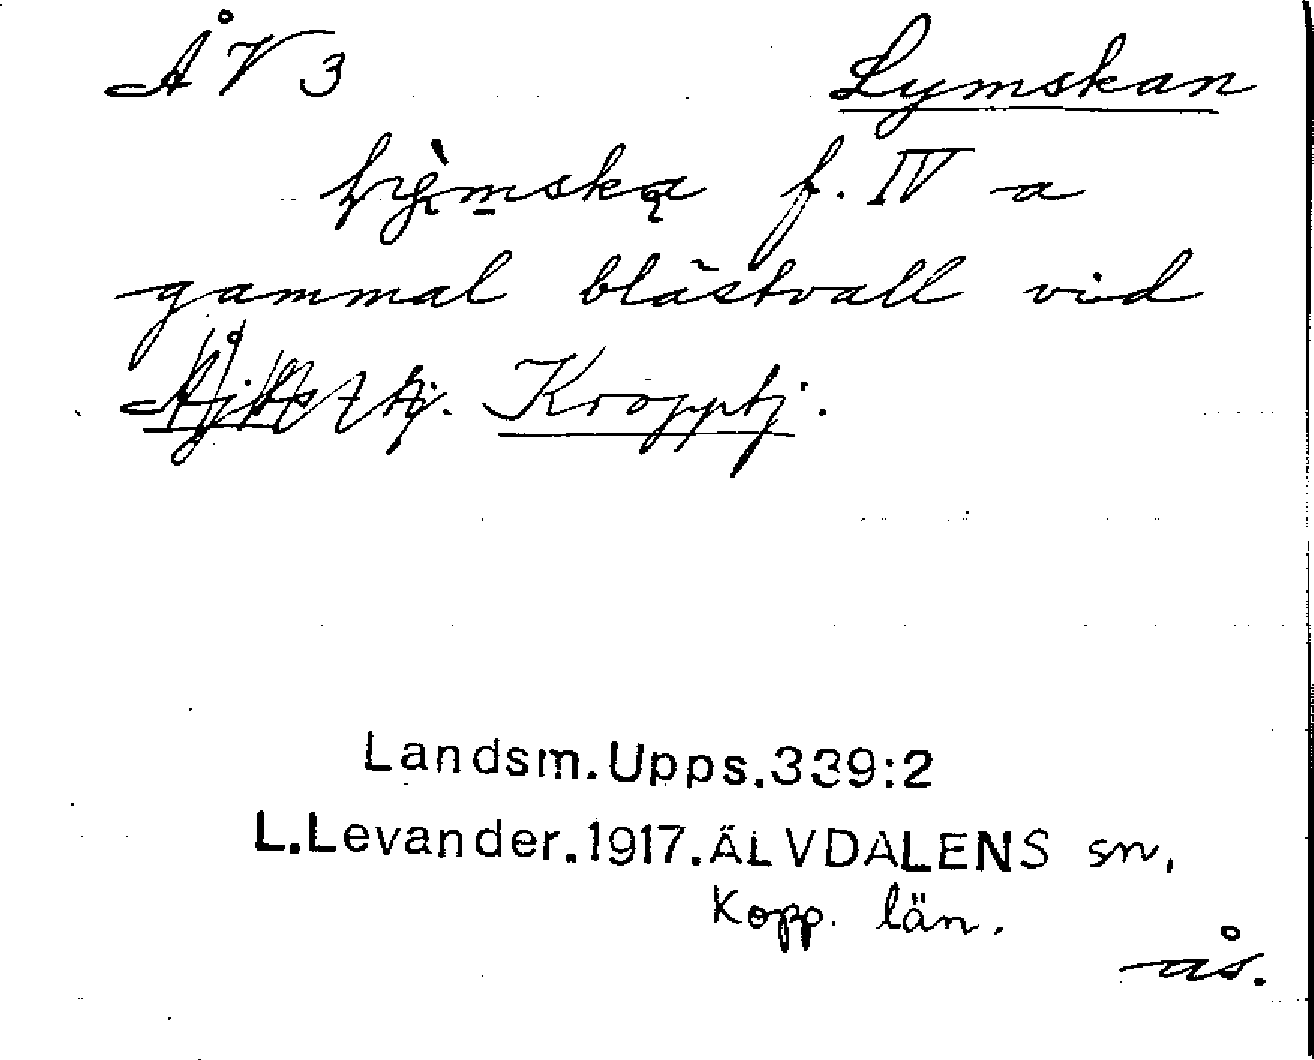 ÅV3 Lymskan
f. IV a
gammal blästvall vid
Kropptj.
Landsm.Upps.339:2
L.Levander.1917.ÄLVDALENS sn,
Kopp. län.
ås.